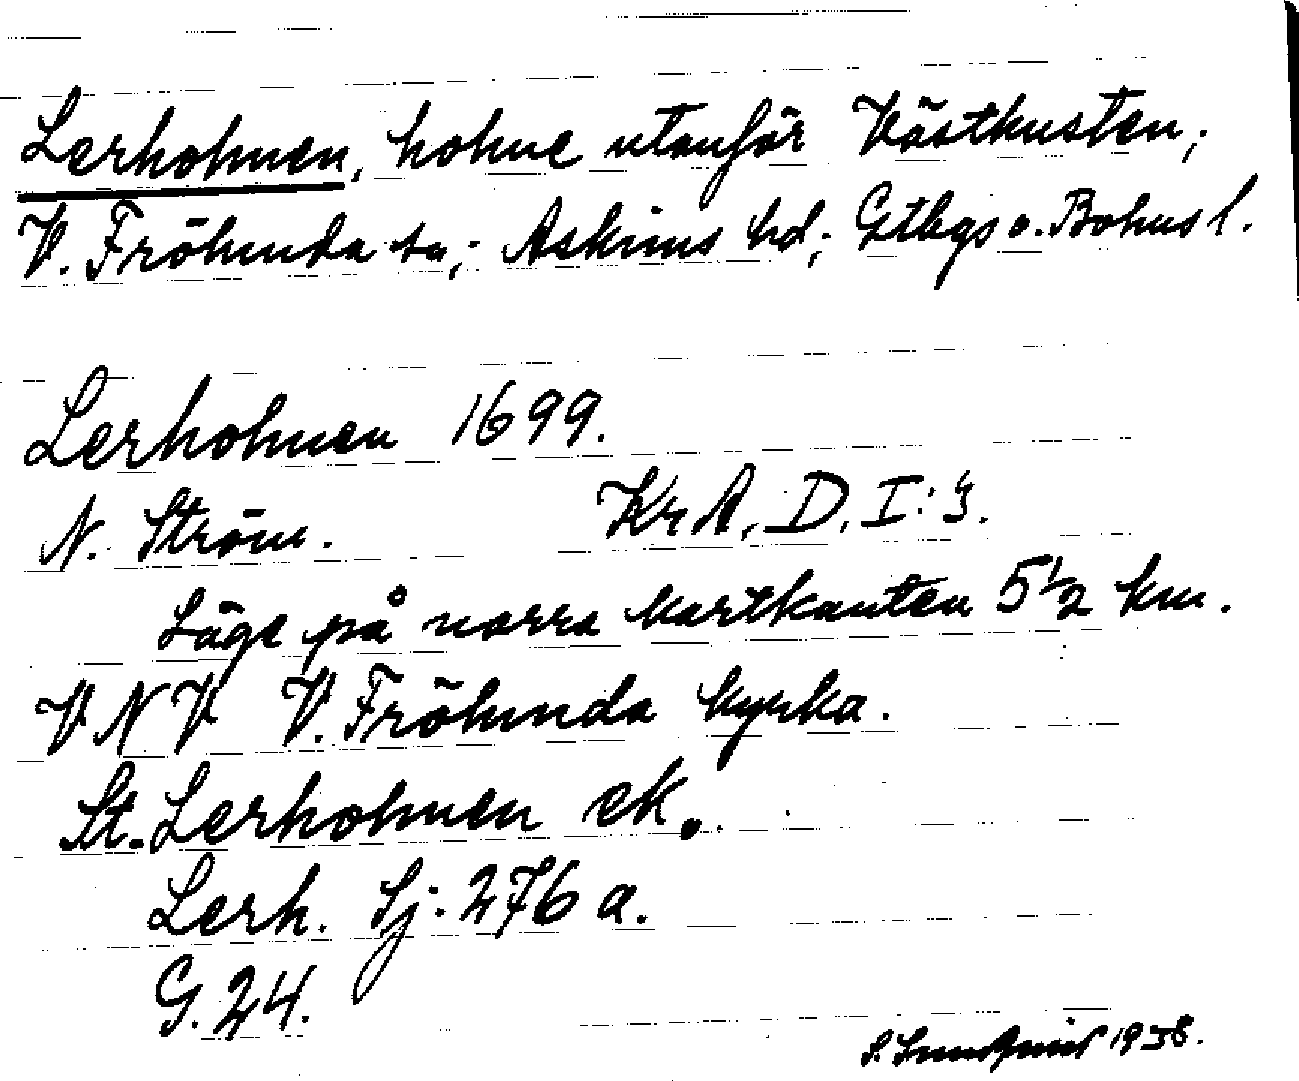 Lerholmen, holme utanför Västkusten;
V. Frölunda sn; Askims hd; Gtbgs o. Bohus l.
Lerholmen 1699.
N. Ström. KrA, D. I:3.
Läge på norra kartkanten 5 1/2 km.
VNV V. Frölunda kyrka.
St. Lerholmen ek.
Lerh. Sj. 276 a.
G. 24.
S. 1938.